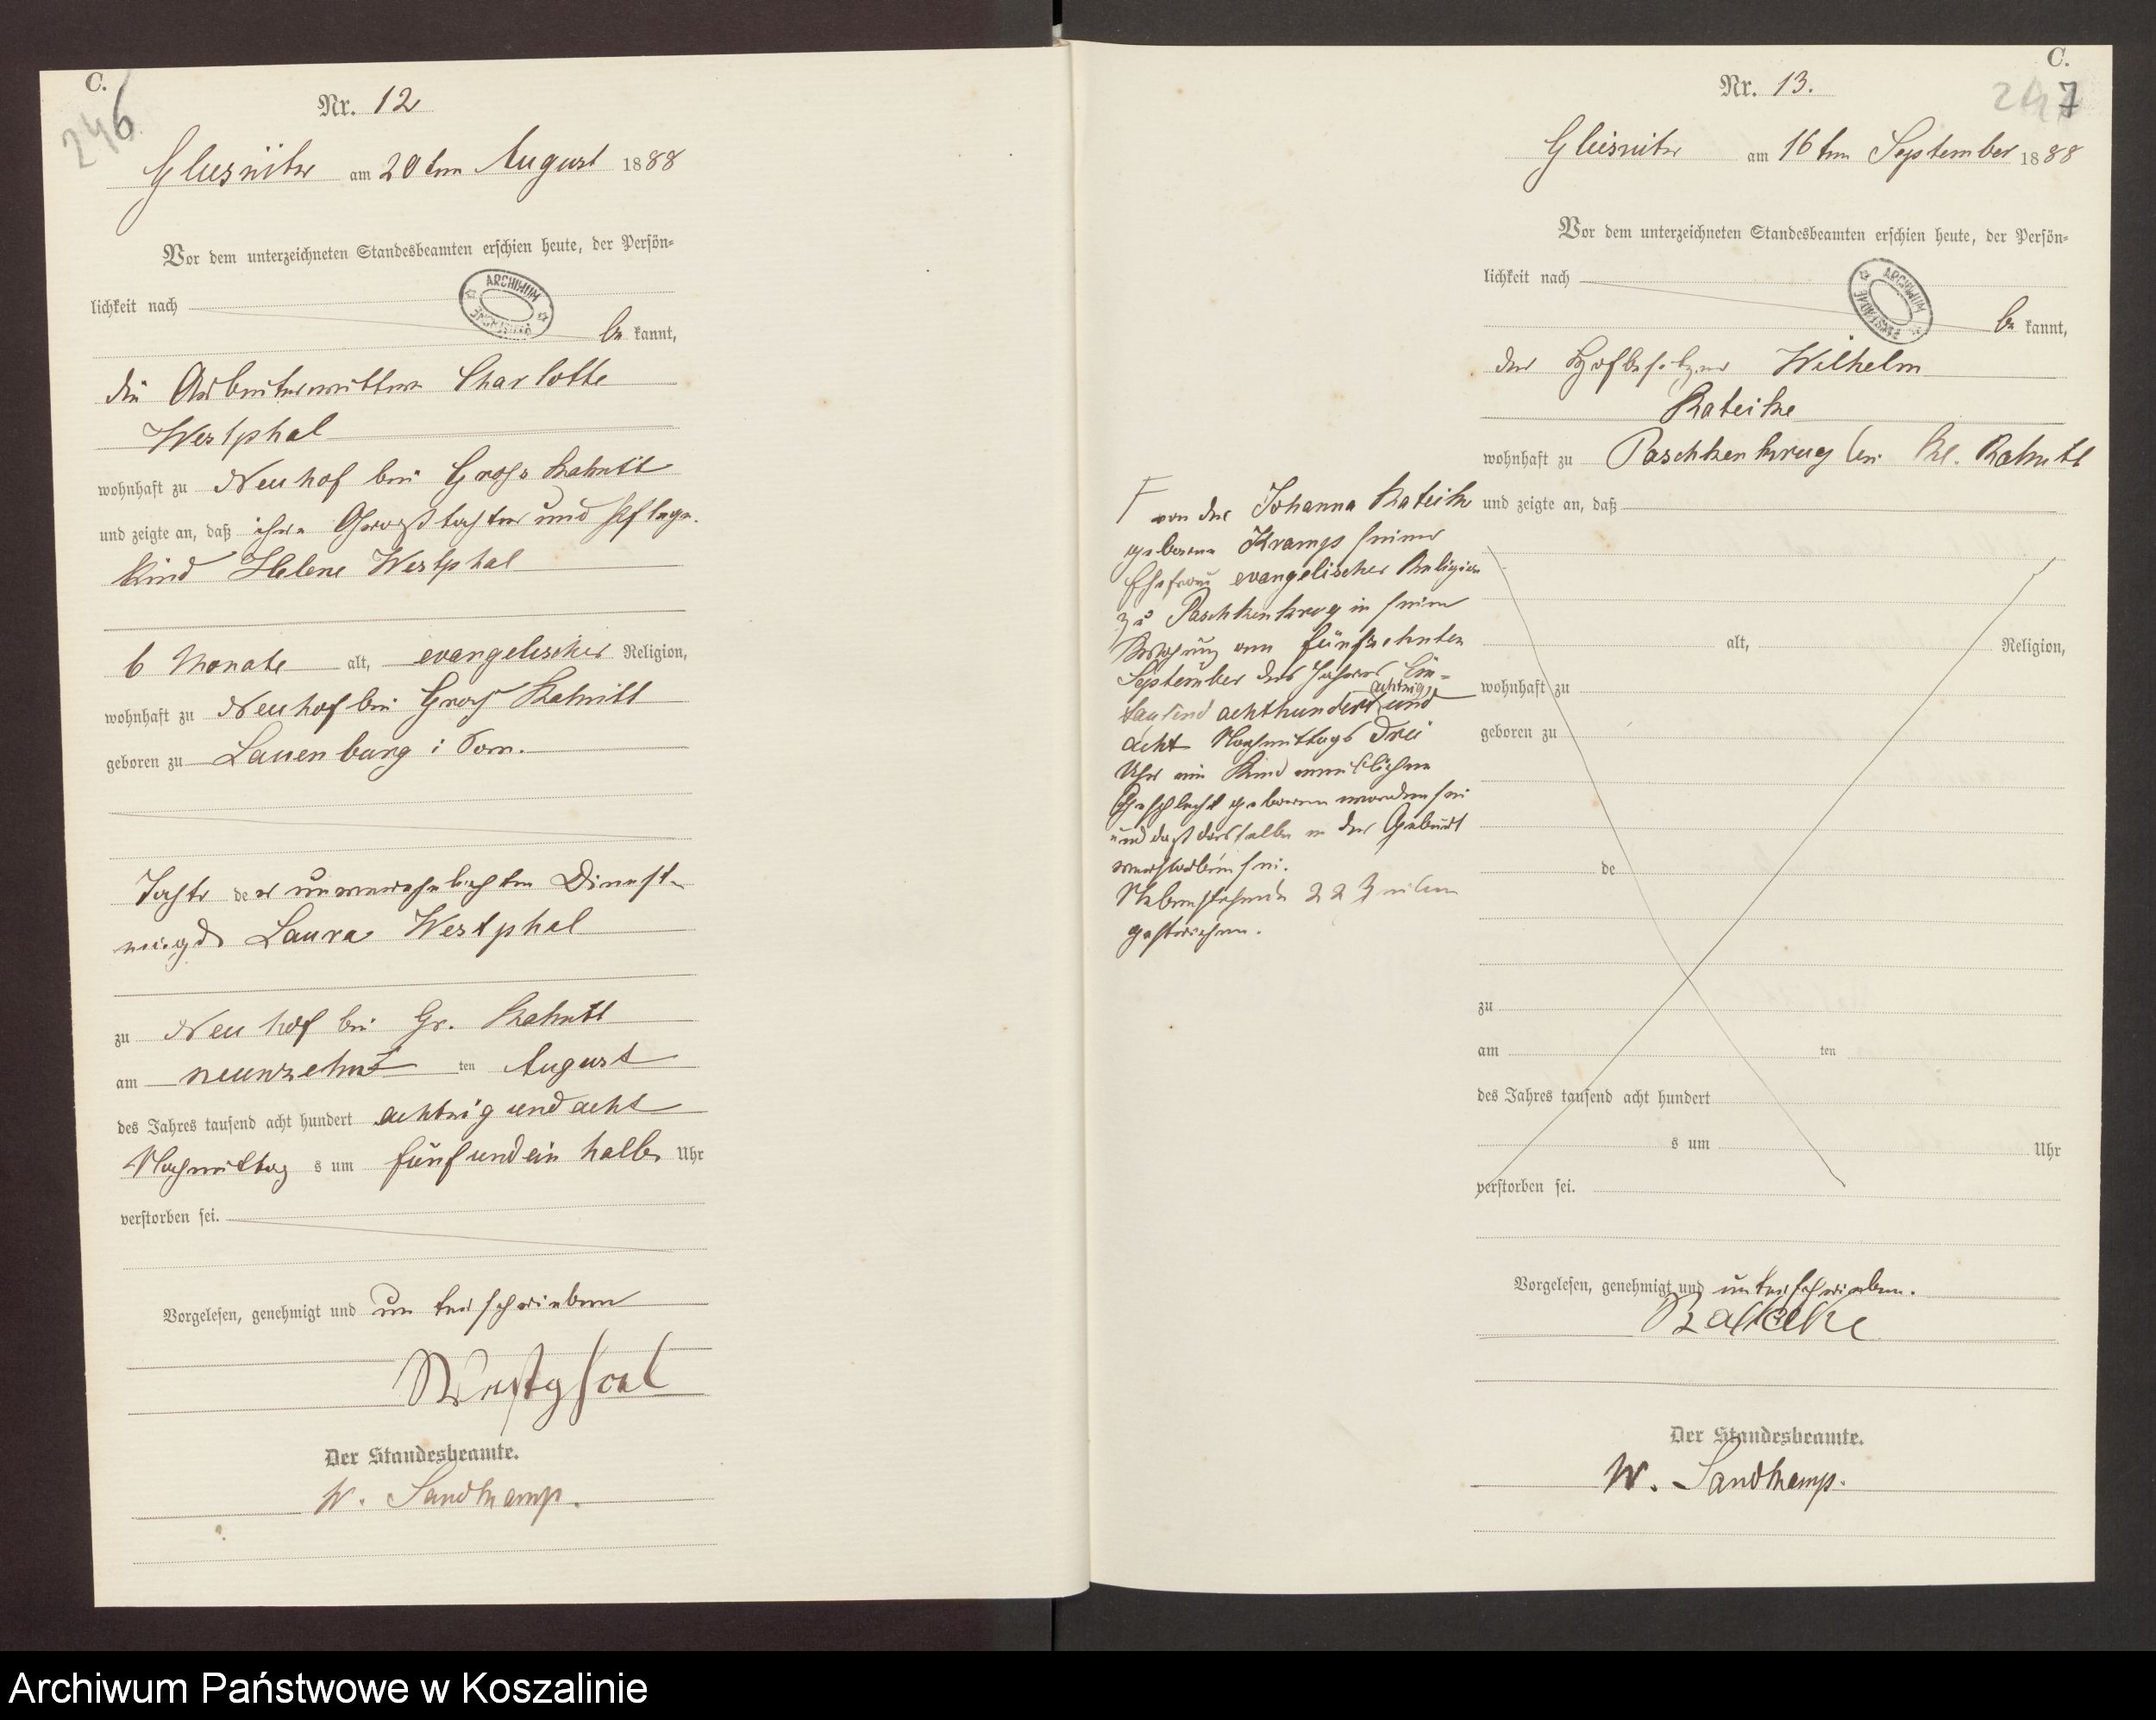 C.
246
Nr. 12
Glusnitz am 20 ten August 1888
Vor dem unterzeichneten Standesbeamten erschien heute, der Persön-
lichkeit nach
be kannt,
die Arbeiterwittwe Charlotte
Westphal
wohnhaft zu Neuhof bei Gross Rakitt
und zeigte an, daß ihre Großtochter und Pflege-
kind Helene Westphal
6 Monate alt, evangelischer Religion,
wohnhaft zu Neuhof bei Groß Rakitt
geboren zu Lauenburg i Pom.
Tochter der unverehelichten Dienst-
magd Laura Westphal
zu Neuhof bei Gr. Rakitt
am neunzehnt ten August
des Jahres tausend acht hundert achtzig und acht
Nachmittag s um fünf und ein halb Uhr
verstorben sei.
Vorgelesen, genehmigt und unterschrieben
Westphal
Der Standesbeamte.
W. Sandkamp.
C.
247
Nr. 13.
Glusnitz am 16 ten September 1888
Vor dem unterzeichneten Standesbeamten erschien heute, der Persön-
lichkeit nach
be kannt,
der Hofbesitzer Wilhelm
Rateike
wohnhaft zu Paschkenkrug bei Kl. Rakitt
und zeigte an, daß
alt, Religion,
wohnhaft zu
geboren zu
de
zu
am ten
des Jahres tausend acht hundert
s um Uhr
verstorben sei.
von der Johanna Rateike
geborene Kramp seiner
Ehefrau evangelischer Religion
zu Paschkenkrug in seiner
Wohnung am fünfzehnten
September des Jahres Ein-
tausend achthundert achtzig und
acht Nachmittags drei
Uhr ein Kind männlichen
Geschlecht geboren worden sei
und daß dasselbe in der Geburt
verstorben sei.
Nebenstehende 22 Zeilen
gestrichen.
Vorgelesen, genehmigt und unterschrieben.
Rateike
Der Standesbeamte.
W. Sandkamp.
ARCHIWUM
ARCHIWUM
Archiwum Państwowe w Koszalinie